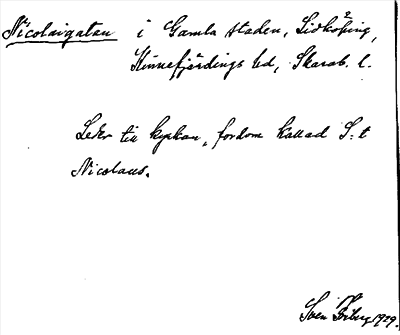 Nicolaigatan i Gamla staden, Lidköping,
Kinnefjärdings hd, Skarab. l.
Leder till kyrkan, fordom kallad S:t
Nicolaus.
Sven 1929.